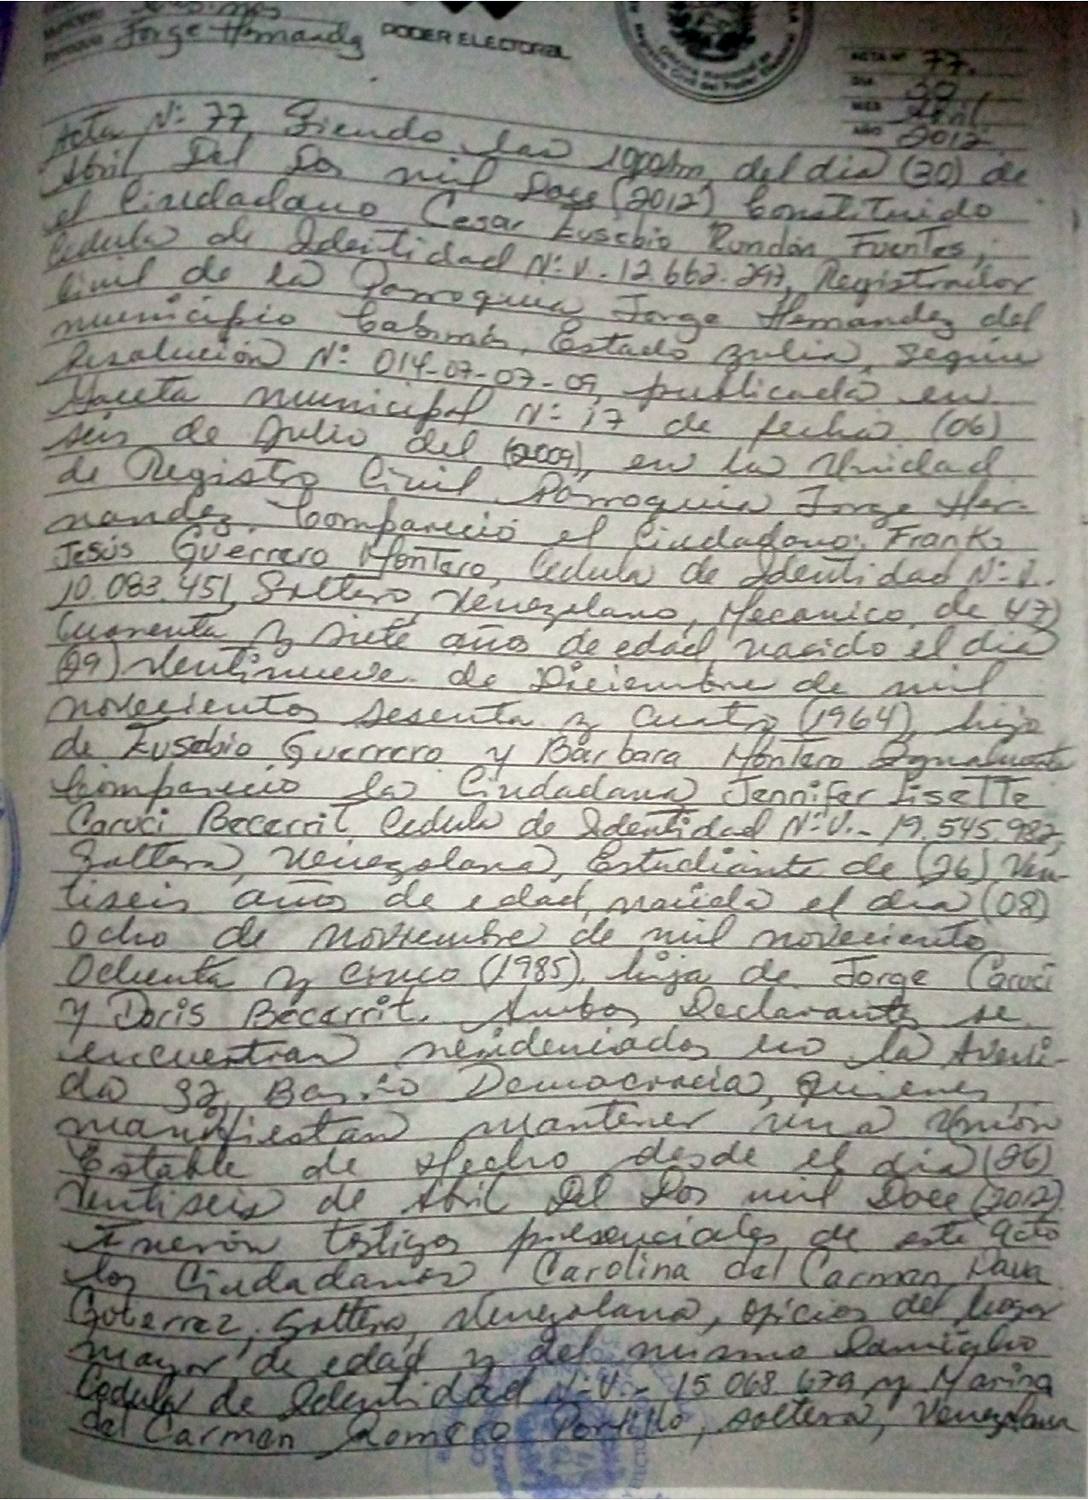 Jorge Hernandez PODER ELECTORAL
ACTA Nº 77.
DIA 30
MES Abril
AÑO 2012
Acta Nº 77, Siendo las 10:00am del dia (30) de
Abril Del Dos mil Doce (2012) Constituido
el Ciudadano Cesar Eusebio Rondón Fuentes,
Cedula de Identidad Nº V. 12.662.297, Registrador
Civil de la Parroquia Jorge Hernandez del
municipio Cabimas, Estado Zulia, según
Resolución Nº 014-07-07-09, publicada en
Gaceta municipal Nº 17 de fecha (06)
seis de Julio del (2009), en la Unidad
de Registro Civil Parroquia Jorge Her-
nandez. Compareció el Ciudadano: Frank
Jesús Guerrero Montero, Cedula de Identidad Nº V.
10.083.451, Soltero, Venezolano, Mecanico, de 47)
Cuarenta y siete años de edad, nacido el dia
(29) Ventinueve de Diciembre de mil
novecientos sesenta y cuatro (1964), hijo
de Eusebio Guerrero y Barbara Montero Igualmente
Compareció la Ciudadana Jennifer Lisette
Caruci Becerrit, Cedula de Identidad Nº V.- 19.545.982,
Soltera, Venezolana, Estudiante de (26) Ven-
tiseis años de edad, nacida el dia (08)
Ocho de Noviembre de mil noveciento
Ochenta y cinco (1985), hija de Jorge Caruci
y Doris Becerrit. Ambos Declarantes se
encuentran residenciados en la Aveni-
da 32, Barrio Democracia, Quienes
manifiestan mantener una Unión
Estable de Hecho desde el dia (26)
Ventiseis de Abril Del Dos mil Doce (2012).
Fuerón testigos presenciales de este Acto
los Ciudadanos Carolina del Carmen Nava
Gotierrez, Soltera, Venezolana, oficios del hogar
mayor de edad y del mismo Domicilio
Cedula de Identidad Nº V.- 15.068.679 y Marina
del Carmen Romero Portillo, soltera, Venezolana